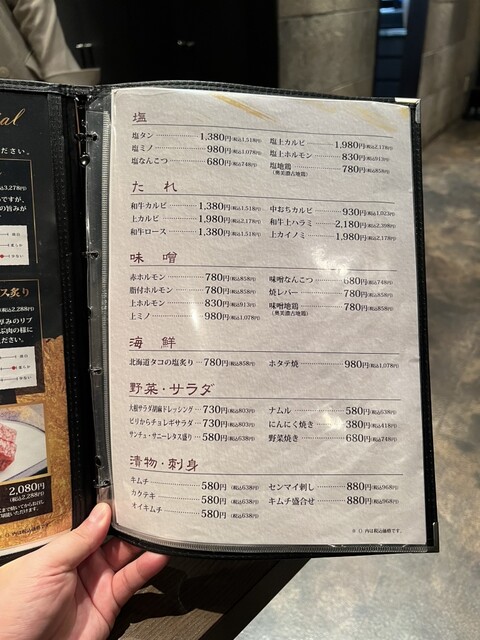 al
ださい。
3,278円)
ですが、
の旨みが
ス炙り
厚みのリブ
ぶ肉の様に
ださい。
2,080円
(税込2,288円)
塩
塩タン 1,380円(税込1,518円)
塩ミノ 980円(税込1,078円)
塩なんこつ 680円(税込748円)
塩上カルビ 1,980円(税込2,178円)
塩上ホルモン 830円(税込913円)
塩地鶏 780円(税込858円)
(奥美濃古地鶏)
たれ
和牛カルビ 1,380円(税込1,518円)
上カルビ 1,980円(税込2,178円)
和牛ロース 1,380円(税込1,518円)
中おちカルビ 930円(税込1,023円)
和牛上ハラミ 2,180円(税込2,398円)
上カイノミ 1,980円(税込2,178円)
味噌
赤ホルモン 780円(税込858円)
脂付ホルモン 780円(税込858円)
上ホルモン 830円(税込913円)
上ミノ 980円(税込1,078円)
味噌なんこつ 680円(税込748円)
焼レバー 780円(税込858円)
味噌地鶏 780円(税込858円)
(奥美濃古地鶏)
海鮮
北海道タコの塩炙り 780円(税込858円)
ホタテ焼 980円(税込1,078円)
野菜・サラダ
大根サラダ胡麻ドレッシング 730円(税込803円)
ピリからチョレギサラダ 730円(税込803円)
サンチュ・サニーレタス盛り 580円(税込638円)
ナムル 580円(税込638円)
にんにく焼き 380円(税込418円)
野菜焼き 680円(税込748円)
漬物・刺身
キムチ 580円(税込638円)
カクテキ 580円(税込638円)
オイキムチ 580円(税込638円)
センマイ刺し 880円(税込968円)
キムチ盛合せ 880円(税込968円)
※()内は税込価格です。